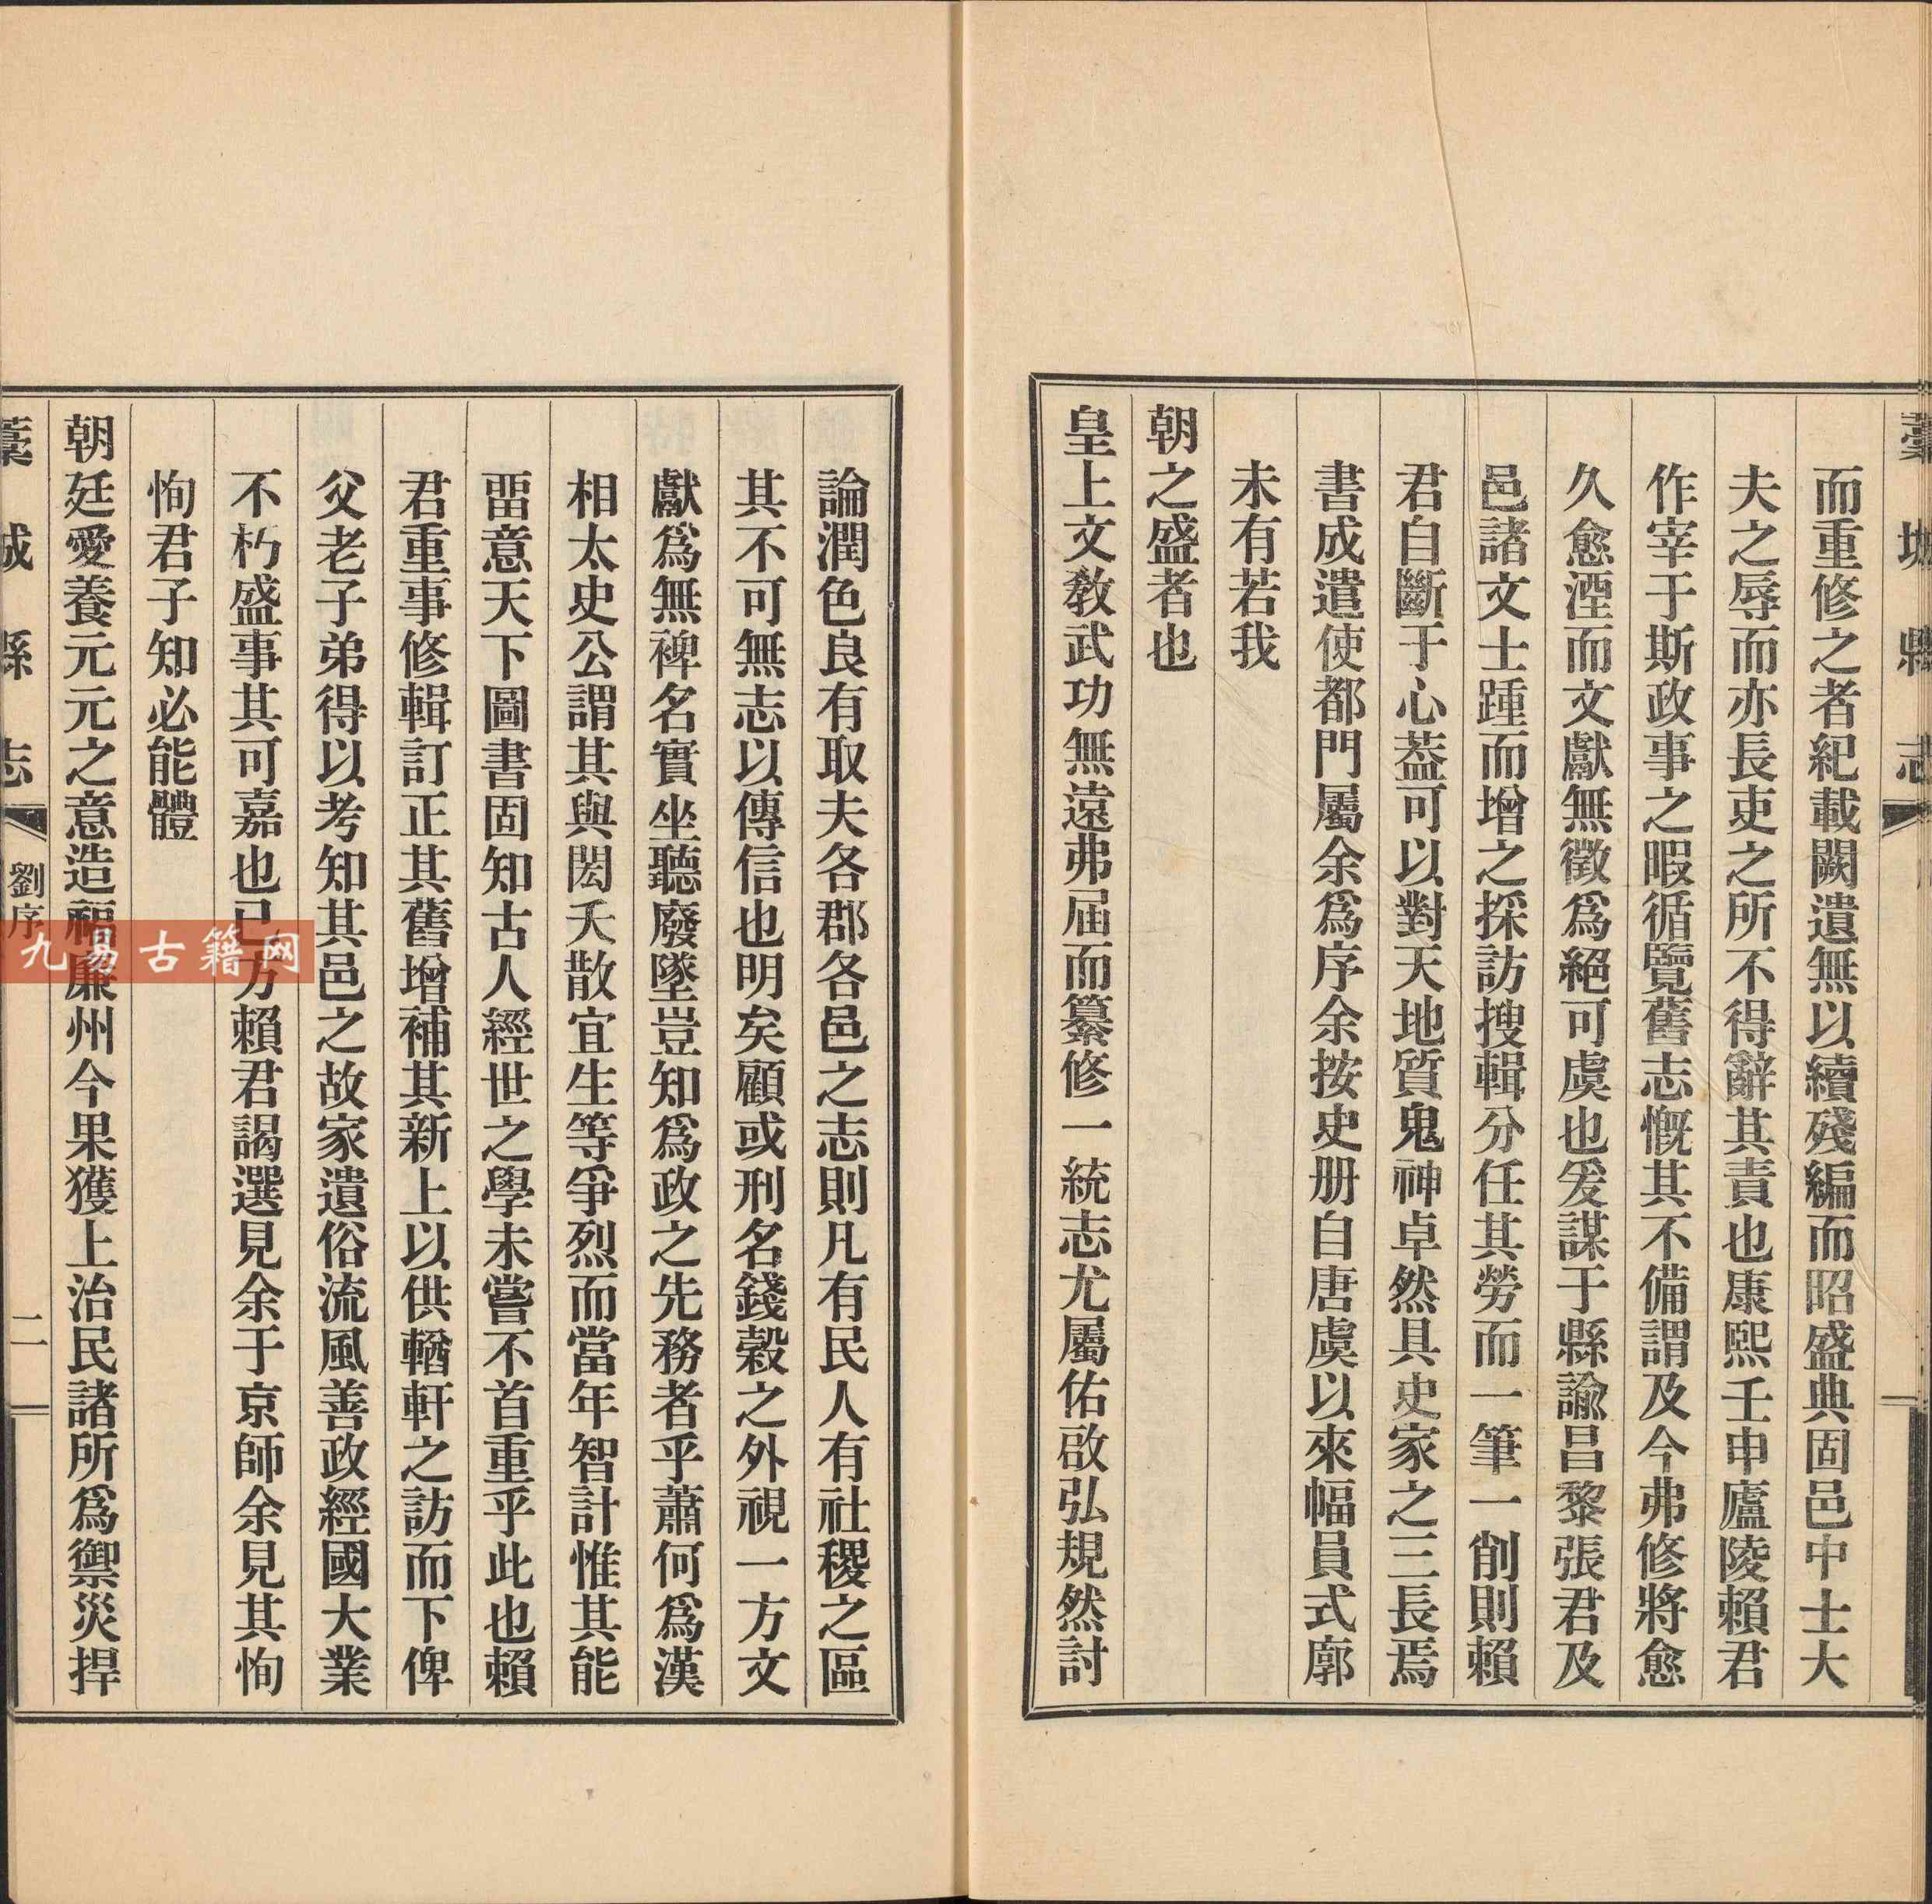 藁城縣志
而重修之者紀載闕遺無以續殘編而昭盛典固邑中士大
夫之辱而亦長吏之所不得辭其責也康熙壬申廬陵賴君
作宰于斯政事之暇循覽舊志慨其不備謂及今弗修將愈
久愈湮而文獻無徵爲絕可虞也爰謀于縣諭昌黎張君及
邑諸文士踵而增之採訪搜輯分任其勞而一筆一削則賴
君自斷于心葢可以對天地質鬼神卓然具史家之三長焉
書成遣使都門屬余爲序余按史册自唐虞以來幅員式廓
未有若我
朝之盛者也
皇上文敎武功無遠弗届而纂修一統志尤屬佑啟弘規然討
論潤色良有取夫各郡各邑之志則凡有民人有社稷之區
其不可無志以傳信也明矣顧或刑名錢穀之外視一方文
獻爲無裨名實坐聽廢墜豈知爲政之先務者乎蕭何爲漢
相太史公謂其與閎夭散宜生等爭烈而當年智計惟其能
畱意天下圖書固知古人經世之學未嘗不首重乎此也賴
君重事修輯訂正其舊增補其新上以供輶軒之訪而下俾
父老子弟得以考知其邑之故家遺俗流風善政經國大業
不朽盛事其可嘉也已方賴君謁選見余于京師余見其恂
恂君子知必能體
朝廷愛養元元之意造福廉州今果獲上治民諸所爲禦災捍
藁城縣志
劉序
二
九易古籍网